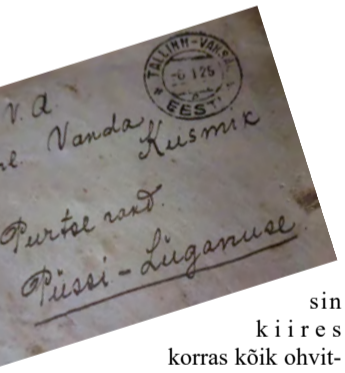 TALLINN-VAKSAL
I 25
EESTI
V. A.
Vanda
Kusmik
Purtse rand.
Püssi-Lüganuse
sin
kiires
korras kõik ohvit-